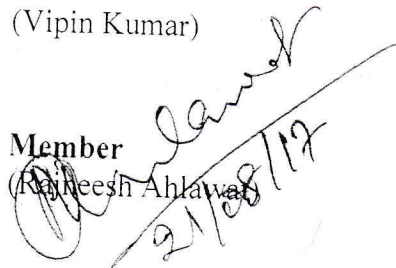 (Vipin Kumar)
Member
(Rajneesh Ahlawat)
21/08/17